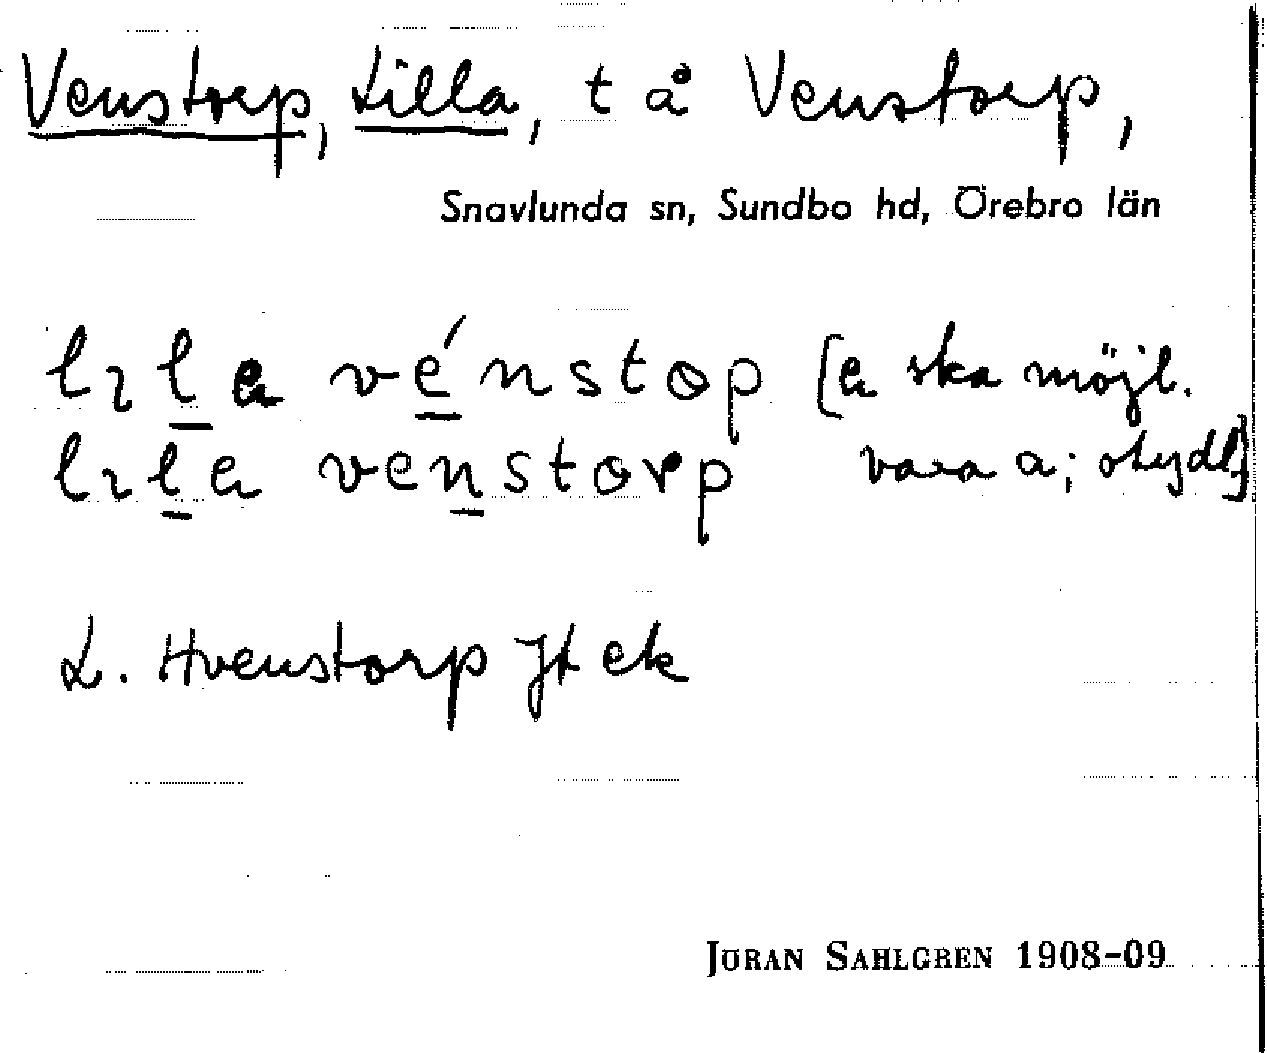 Venstorp, Lilla, t å Venstorp,
Snavlunda sn, Sundbo hd, Örebro län
lıla vénstop [a ska möjl.
lıla venstorp vara a; otydl]
L. Hvenstorp Jt ek
JÖRAN SAHLGREN 1908-09